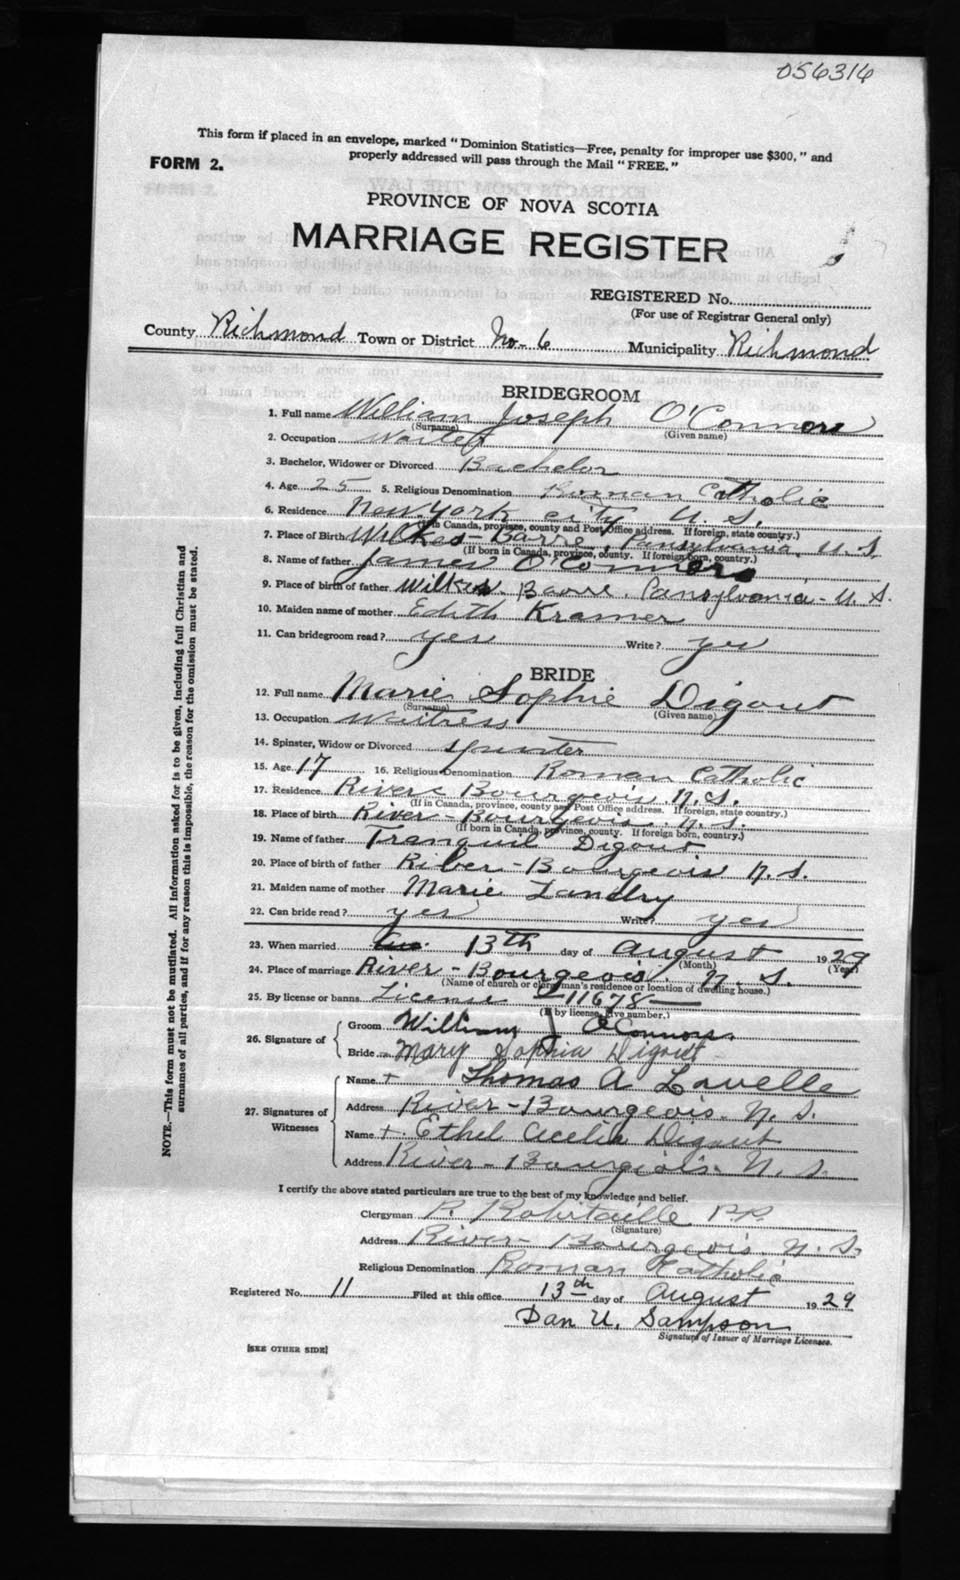 056316
This form if placed in an envelope, marked " Dominion Statistics—Free, penalty for improper use $300, " and
FORM 2. properly addressed will pass through the Mail " FREE."
PROVINCE OF NOVA SCOTIA
MARRIAGE REGISTER
REGISTERED No.
(For use of Registrar General only)
County Richmond Town or District No. 6 Municipality Richmond
BRIDEGROOM
1. Full name William Joseph O'Connors
(Surname) (Given name)
2. Occupation Waiter
3. Bachelor, Widower or Divorced Bachelor
4. Age 25 5. Religious Denomination Roman Catholic
6. Residence New York city U. S.
(If in Canada, province, county and Post Office address. If foreign, state country.)
7. Place of Birth Wilkes-Barre, Pansylvania, U. S.
(If born in Canada, province, county. If foreign born, country.)
8. Name of father James O'Connors
9. Place of birth of father Wilkes. Barre. Pansylvania - U. S.
10. Maiden name of mother Edith Kramer
11. Can bridegroom read? yes Write? yes
BRIDE
12. Full name Marie Sophie Digout
(Surname) (Given name)
13. Occupation Waitress
14. Spinster, Widow or Divorced spinster
15. Age 17 16. Religious Denomination Roman Catholic
17. Residence River Bourgeois. N. S.
(If in Canada, province, county and Post Office address. If foreign, country.)
18. Place of birth River - Bourgeois. N. S.
(If born in Canada, province, county. If foreign born, country.)
19. Name of father Tranquil Digout
20. Place of birth of father River - Bourgeois N. S.
21. Maiden name of mother Marie Landry
22. Can bride read? yes Write? yes
23. When married 13th day of August 1929
(Month) (Year)
24. Place of marriage River - Bourgeois. N. S.
(Name of church or clergyman's residence or location of dwelling house.)
25. By license or banns. License — 11678 —
(If by license, give number.)
26. Signature of
Groom William J O'Connors.
Bride Mary Sophia Digout
27. Signatures of Witnesses
Name + Thomas A Lavelle
Address River - Bourgeois. N. S.
Name +. Ethel Cecelia Digout
Address River - Bourgeois. N. S.
I certify the above stated particulars are true to the best of my knowledge and belief.
Clergyman P. Robitaille P.P.
(Signature)
Address River - Bourgeois. N. S.
Religious Denomination Roman Catholic
Registered No. 11 Filed at this office 13th day of August 1929
Dan U. Sampson
Signature of Issuer of Marriage Licenses.
[SEE OTHER SIDE]
NOTE.—This form must not be mutilated. All information asked for is to be given, including full Christian and
surnames of all parties, and if for any reason this is impossible, the reason for the omission must be stated.